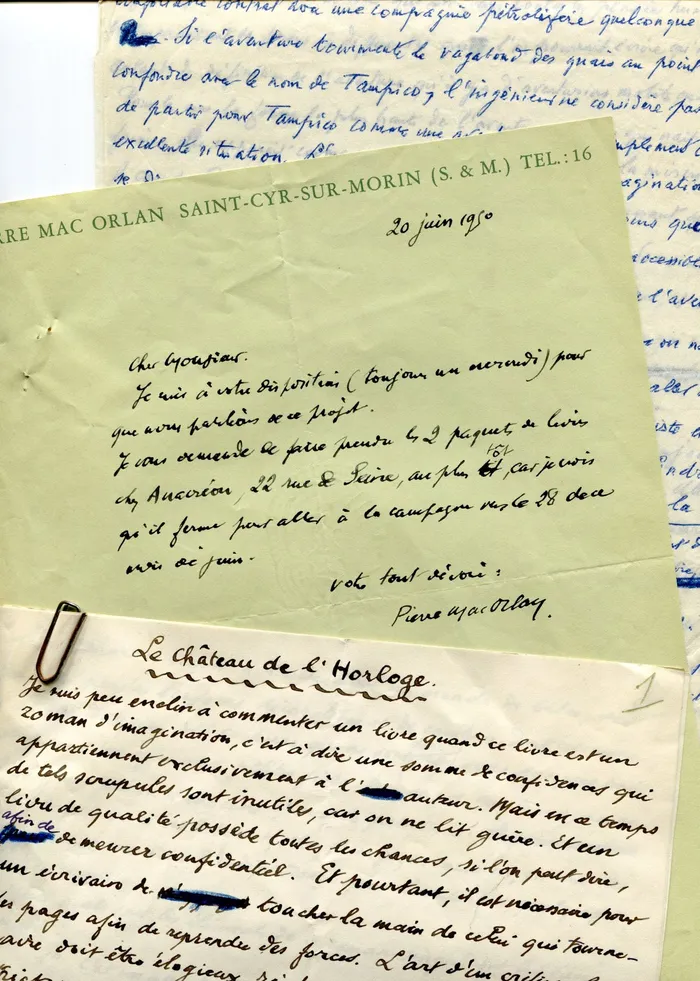 contrat avec une compagnie pétrolifère quelconque
Si l'aventure tourmente le vagabond des quais au point
confondre avec le nom de Tampico, l'ingénieur ne considère pas
de partir pour Tampico comme une
excellente situation.
se
RRE MAC ORLAN SAINT-CYR-SUR-MORIN (S. & M.) TEL.: 16
20 juin 1950
Cher Monsieur.
Je suis à votre disposition (toujours un mercredi) pour
que nous parlions de ce projet.
Je vous demande de faire prendre les 2 paquets de livres
chez Anacréon, 22 rue de Seine, au plus tôt, car je crois
qu'il ferme pour aller à la campagne vers le 28 de ce
mois de juin.
votre tout dévoué :
Pierre Mac Orlan.
Le Château de l'Horloge.
1
Je suis peu enclin à commenter un livre quand ce livre est un
roman d'imagination, c'est à dire une somme de confidences qui
appartiennent exclusivement à l'auteur. Mais en ce temps
de tels scrupules sont inutiles, car on ne lit guère. Et un
livre de qualité possède toutes les chances, si l'on peut dire,
afin de
demeurer confidentiel. Et pourtant, il est nécessaire pour
un écrivain de toucher la main de celui qui tourne-
les pages afin de reprendre des forces. L'art d'un
doit être élogieux